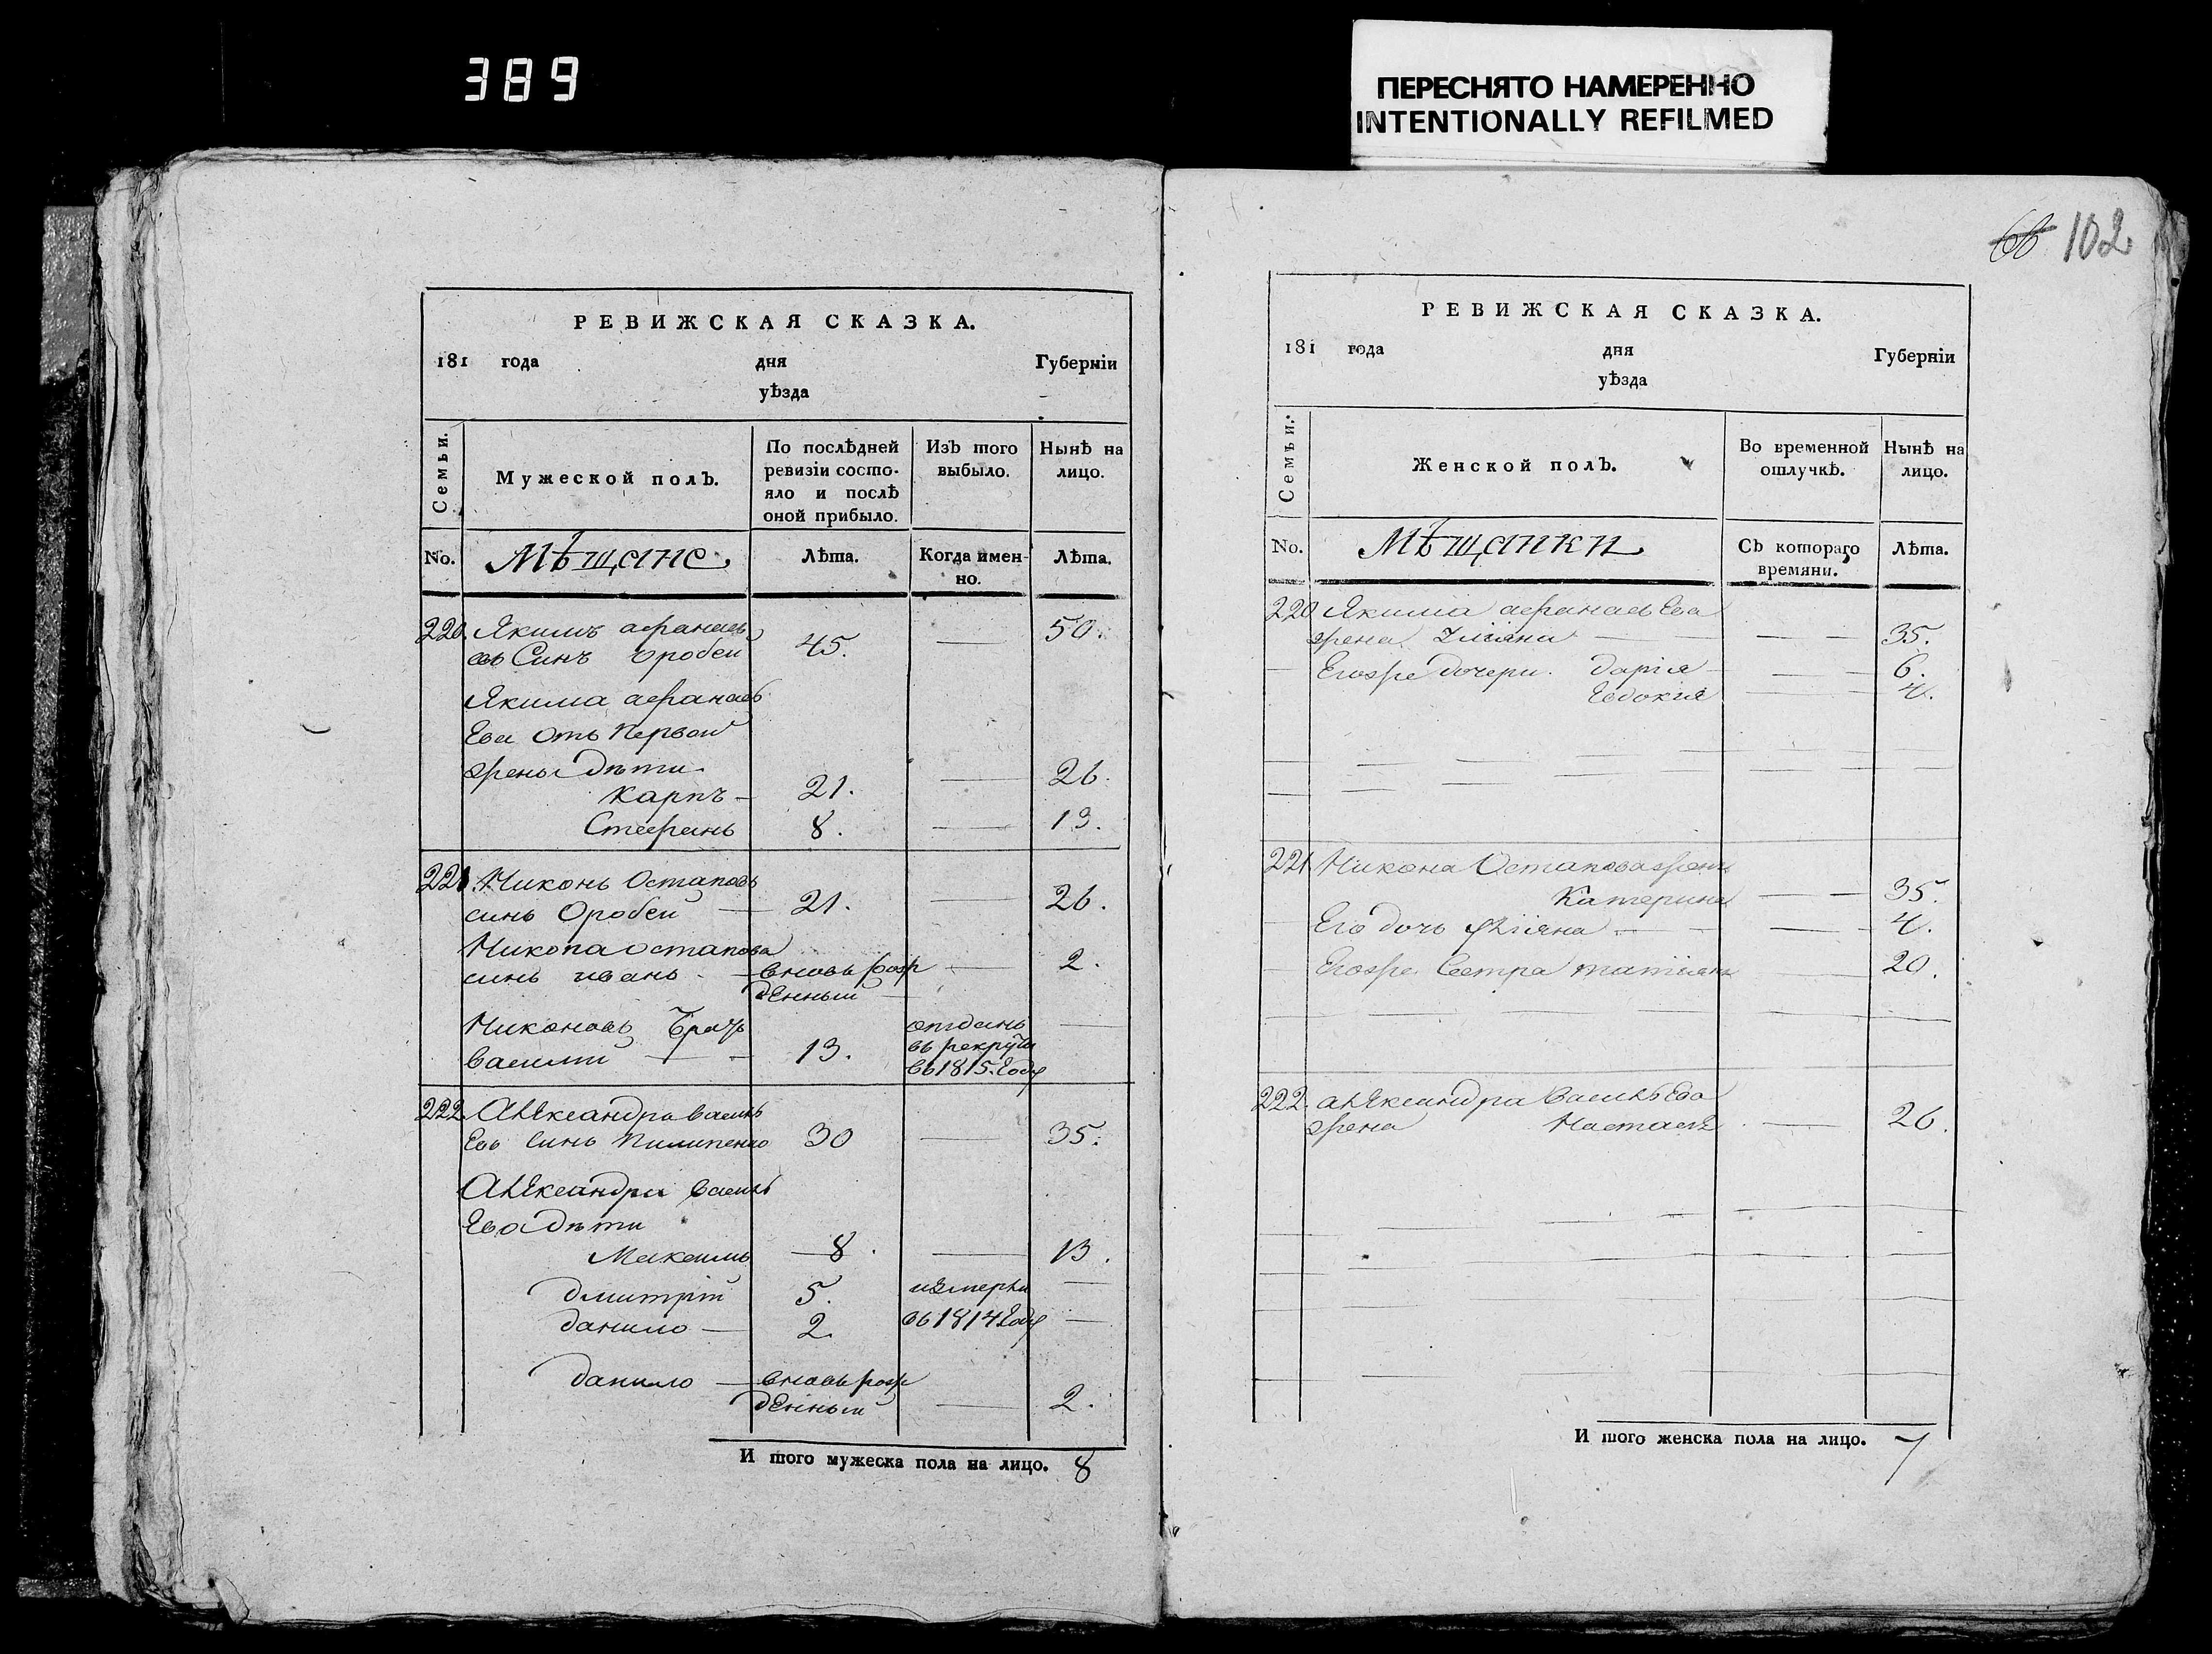 389
ПЕРЕСНЯТО НАМЕРЕННО
INTENTIONALLY REFILMED
РЕВИЖСКАЯ СКАЗКА.
181 года дня Губерніи
уѣзда
Семьи.
Мужеской полъ.
По послѣдней ревизіи состо-
яло и послѣ оной прибыло.
Изъ того выбыло.
Нынѣ на лицо.
No. Мѣщане Лѣта. Когда имен-
но. Лѣта.
220. Якимъ афанаев
евъ Синъ Оробей 45. 50.
Якима афанаев
Ева Отъ Первой
жены дѣти
Карпъ 21. 26.
Стефанъ 8. 13.
221. Никонъ Остаповъ
синъ Оробей 21. 26.
Никона остапова
синъ иванъ вновь рож
денный 2.
Никоновъ Братъ
василий 13. отданъ
въ рекруты
въ 1815. Году
222. Александра василь
Евъ Синъ Пилипенко 30 35.
Александра василь
Ева дѣти
Максимъ 8. 13.
дмитрій 5. измерли
данило 2. въ 1814 Году
данило вновь рож
денный 2.
И того мужеска пола на лицо. 8
66 102
РЕВИЖСКАЯ СКАЗКА.
181 года дня Губерніи
уѣзда
Семьи.
Женской полъ.
Во временной отлучкѣ.
Нынѣ на лицо.
No. Мѣщанки Съ котораго
времяни. Лѣта.
220 Якима афанаевЕва
жена 35.
Егожъ дочери. дарія 6.
Евдокія 4.
221 Никона Остапова жена
Катерина 35.
Его дочь 4.
Егожъ Сестра татіяна 20.
222. александра ВасильЕва
жена Настасія 26.
И того женска пола на лицо. 7